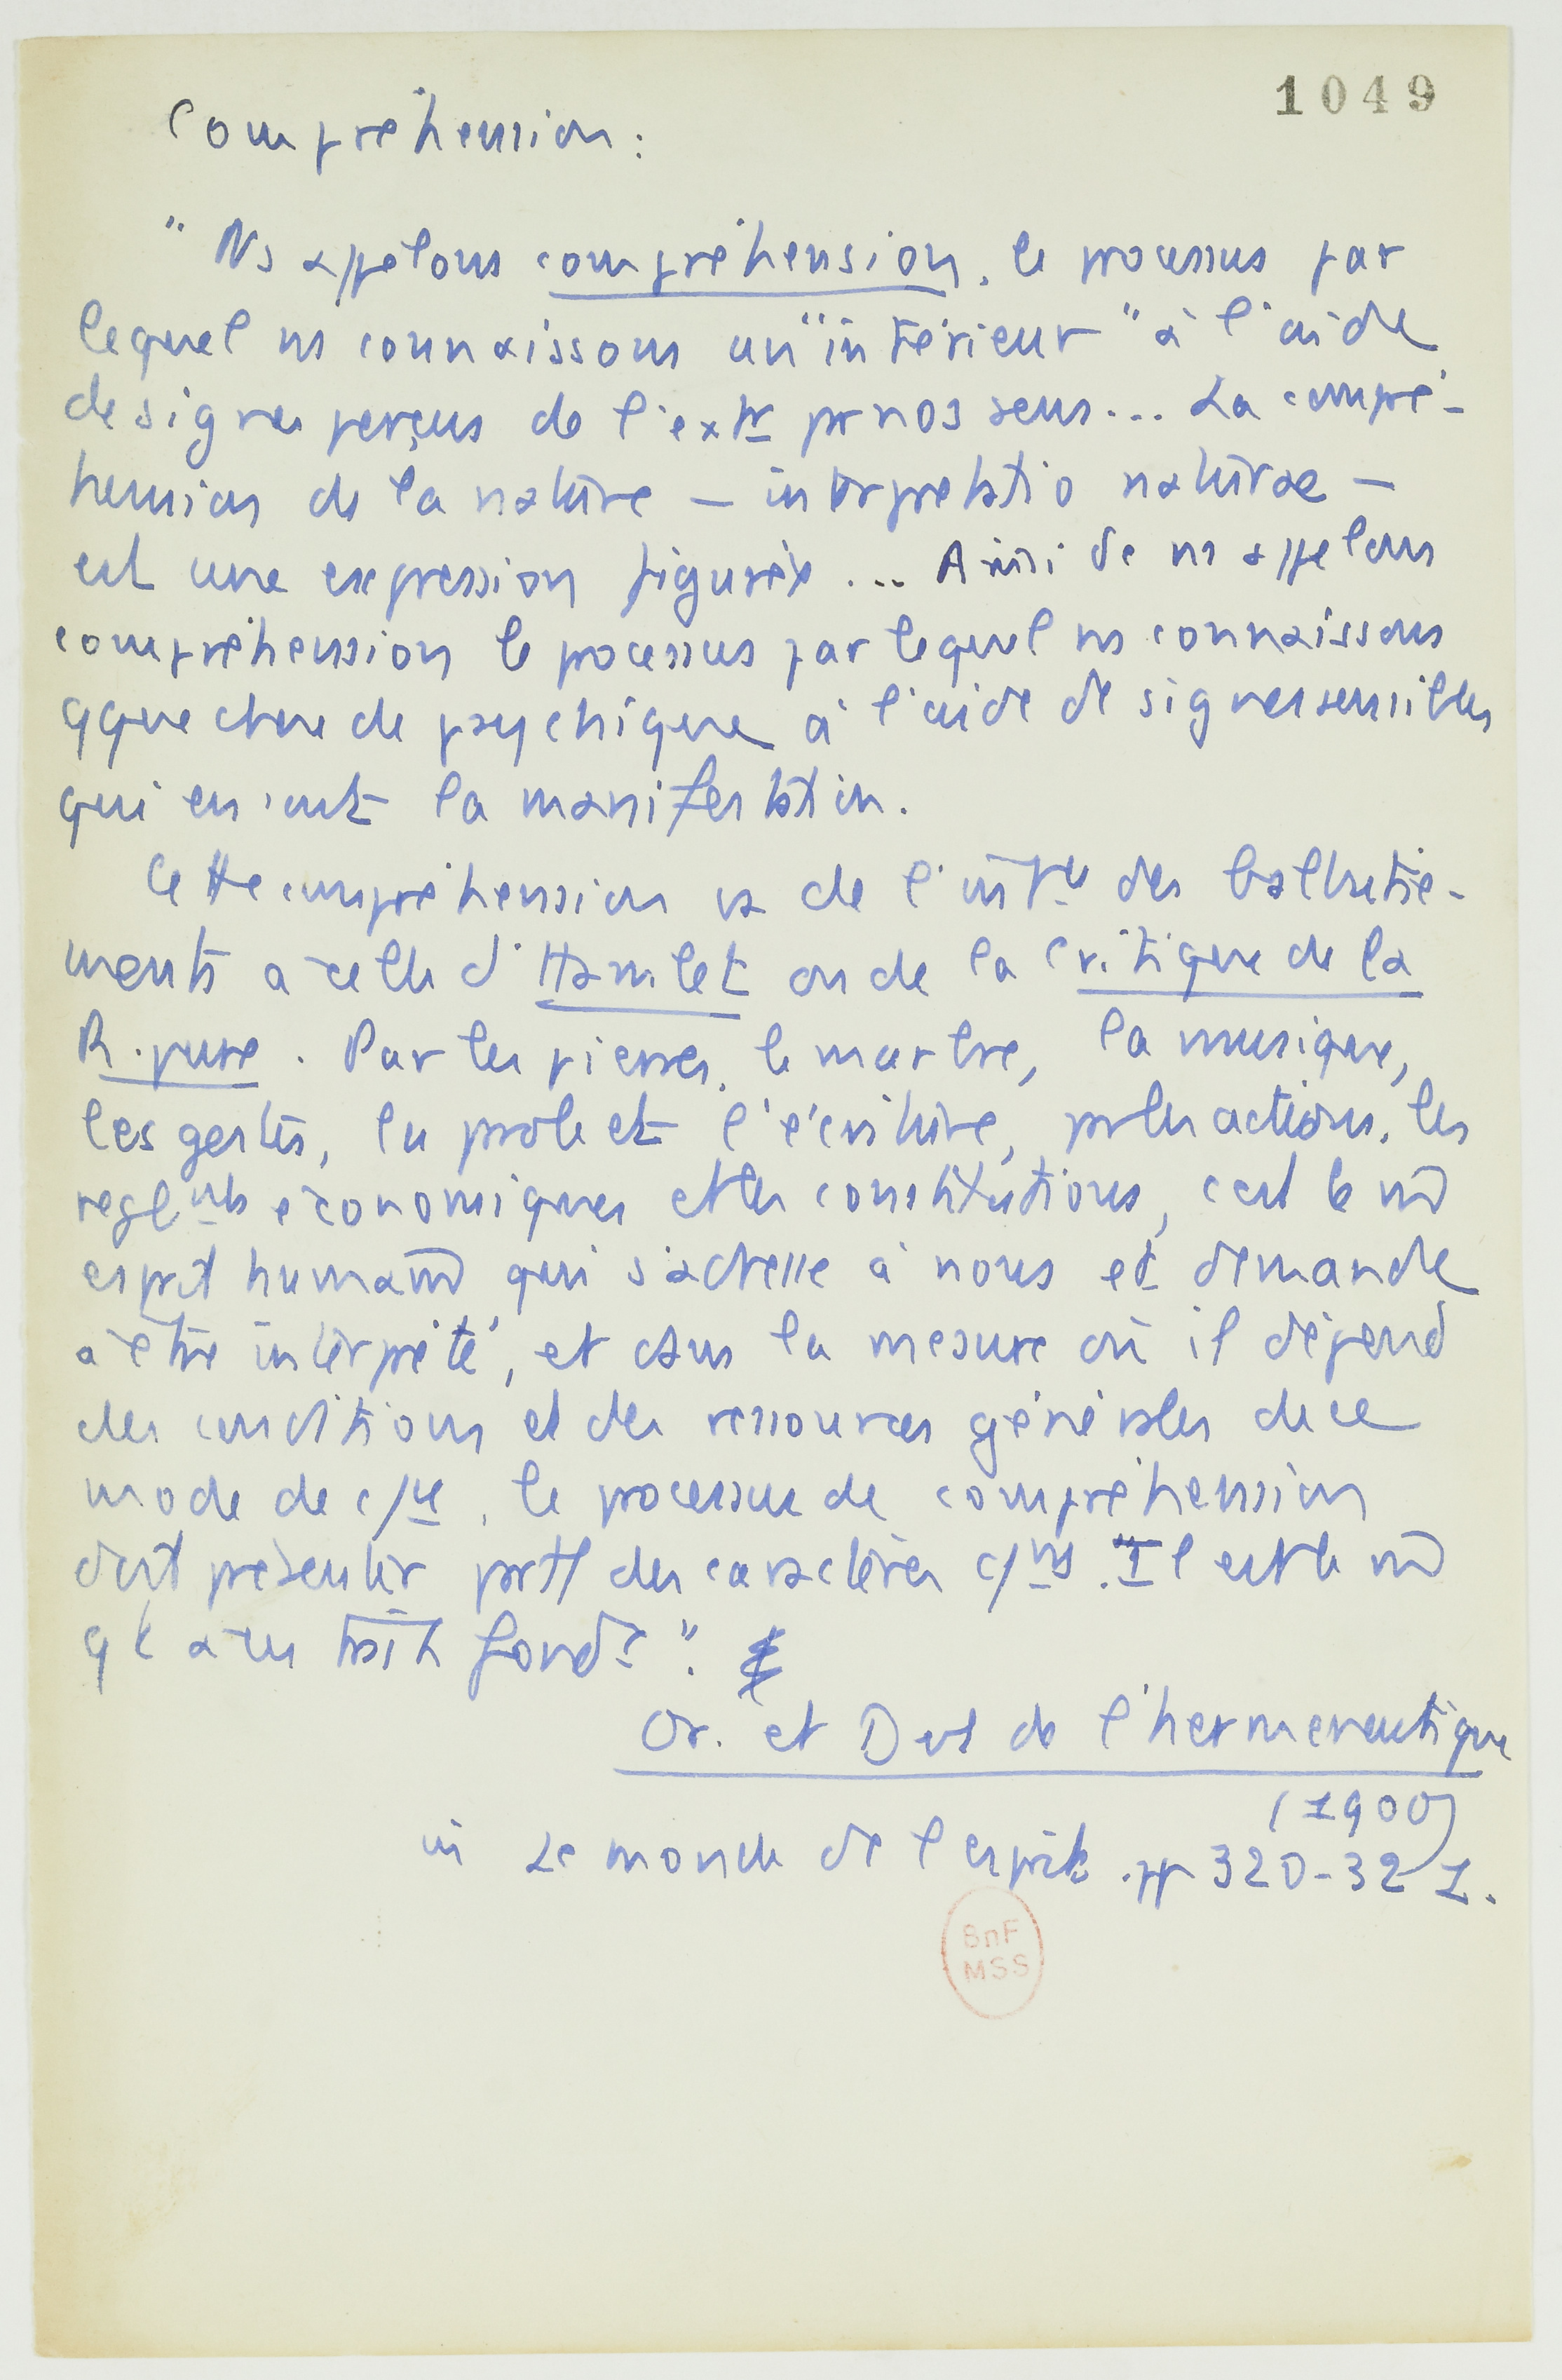 1049
Compréhension :
" Ns appelons compréhension, le processus par
lequel ns connaissons un "intérieur" à l'aide
de signes perçus de l'extr pr nos sens... La compré-
hension de la nature — interpretatio naturae —
est une expression figurée ... Ainsi dc ns appelons
compréhension le processus par lequel ns connaissons
qque chose de psychique à l'aide de signes sensibles
qui en sont la manifestation.
Cette compréhension va de l' des balbutie-
ments à celle d'Hamlet ou de la Critique de la
R. pure. Par les pierres, le marbre, la musique,
les gestes, la parole et l'écriture, par les actions, les
reglnts économiques et les constitutions, c'est le m̄
esprit humain qui s'adresse à nous et demande
à être interprété, et dans la mesure où il dépend
des conditions et des ressources générales de ce
mode de c/ce, le processus de compréhension
doit présenter partt des caractères c/ns. Il est le m̄
qt à ses traits fondx".
Or. et Devt de l'hermeneutique
(1900)
in Le monde de l'esprit. pp 320-321.
BnF
MSS